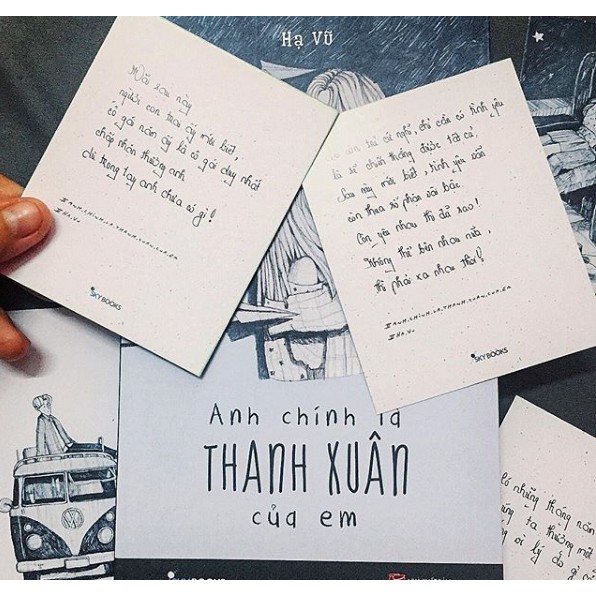 Hạ Vũ
Mãi sau này
người con trai ấy mới biết,
cô gái năm ấy là cô gái duy nhất
chấp nhận thương anh
dù trong tay anh chưa có gì!
#ANH.CHÍNH.LÀ.THANH.XUÂN.CỦA.EM
#HẠ.VŨ
SKYBOOKS
trẻ cứ nghĩ, chỉ cần có tình yêu
là sẽ chiến thắng được tất cả.
Sau này mới biết, tình yêu vẫn
còn thua số phận vài bậc.
Còn yêu nhau thì đã sao!
Không thể bên nhau nữa,
thì phải xa nhau thôi!
#ANH.CHÍNH.LÀ.THANH.XUÂN.CỦA.EM
#HẠ.VŨ
SKYBOOKS
Anh chính là
THANH XUÂN
của em
có những tháng năm
ta thương một
vì lý do gì
SKYBOOKS